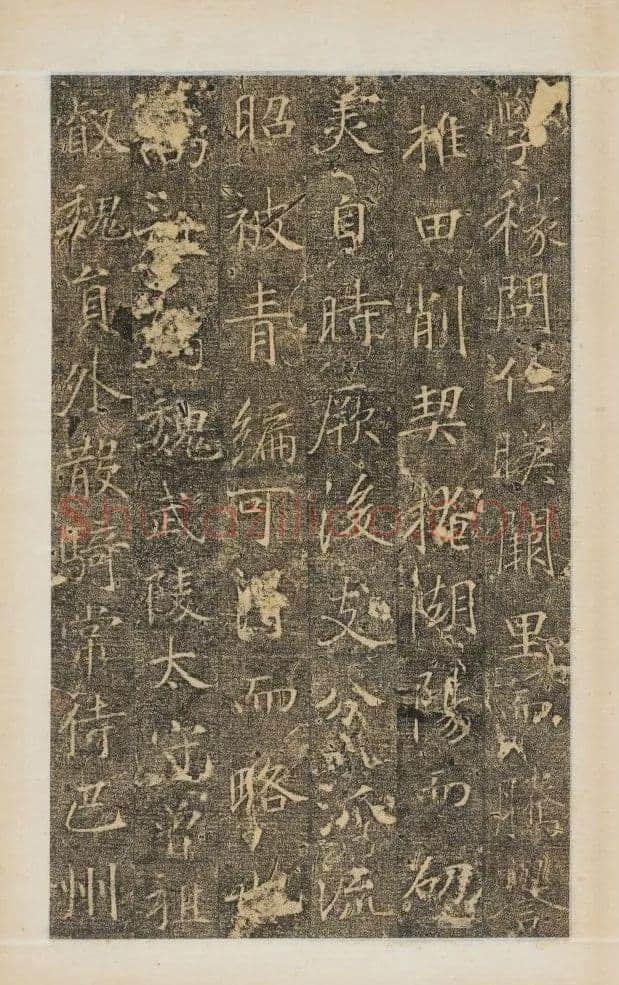 學稼問仁睠闕里而騰
推田削契掩湖陽而
美自時厥後支分派流
昭被青編可得而略也
高祖魏武陵太守曾祖
叡魏員外散騎常侍巴州
Shufaziliao.COM